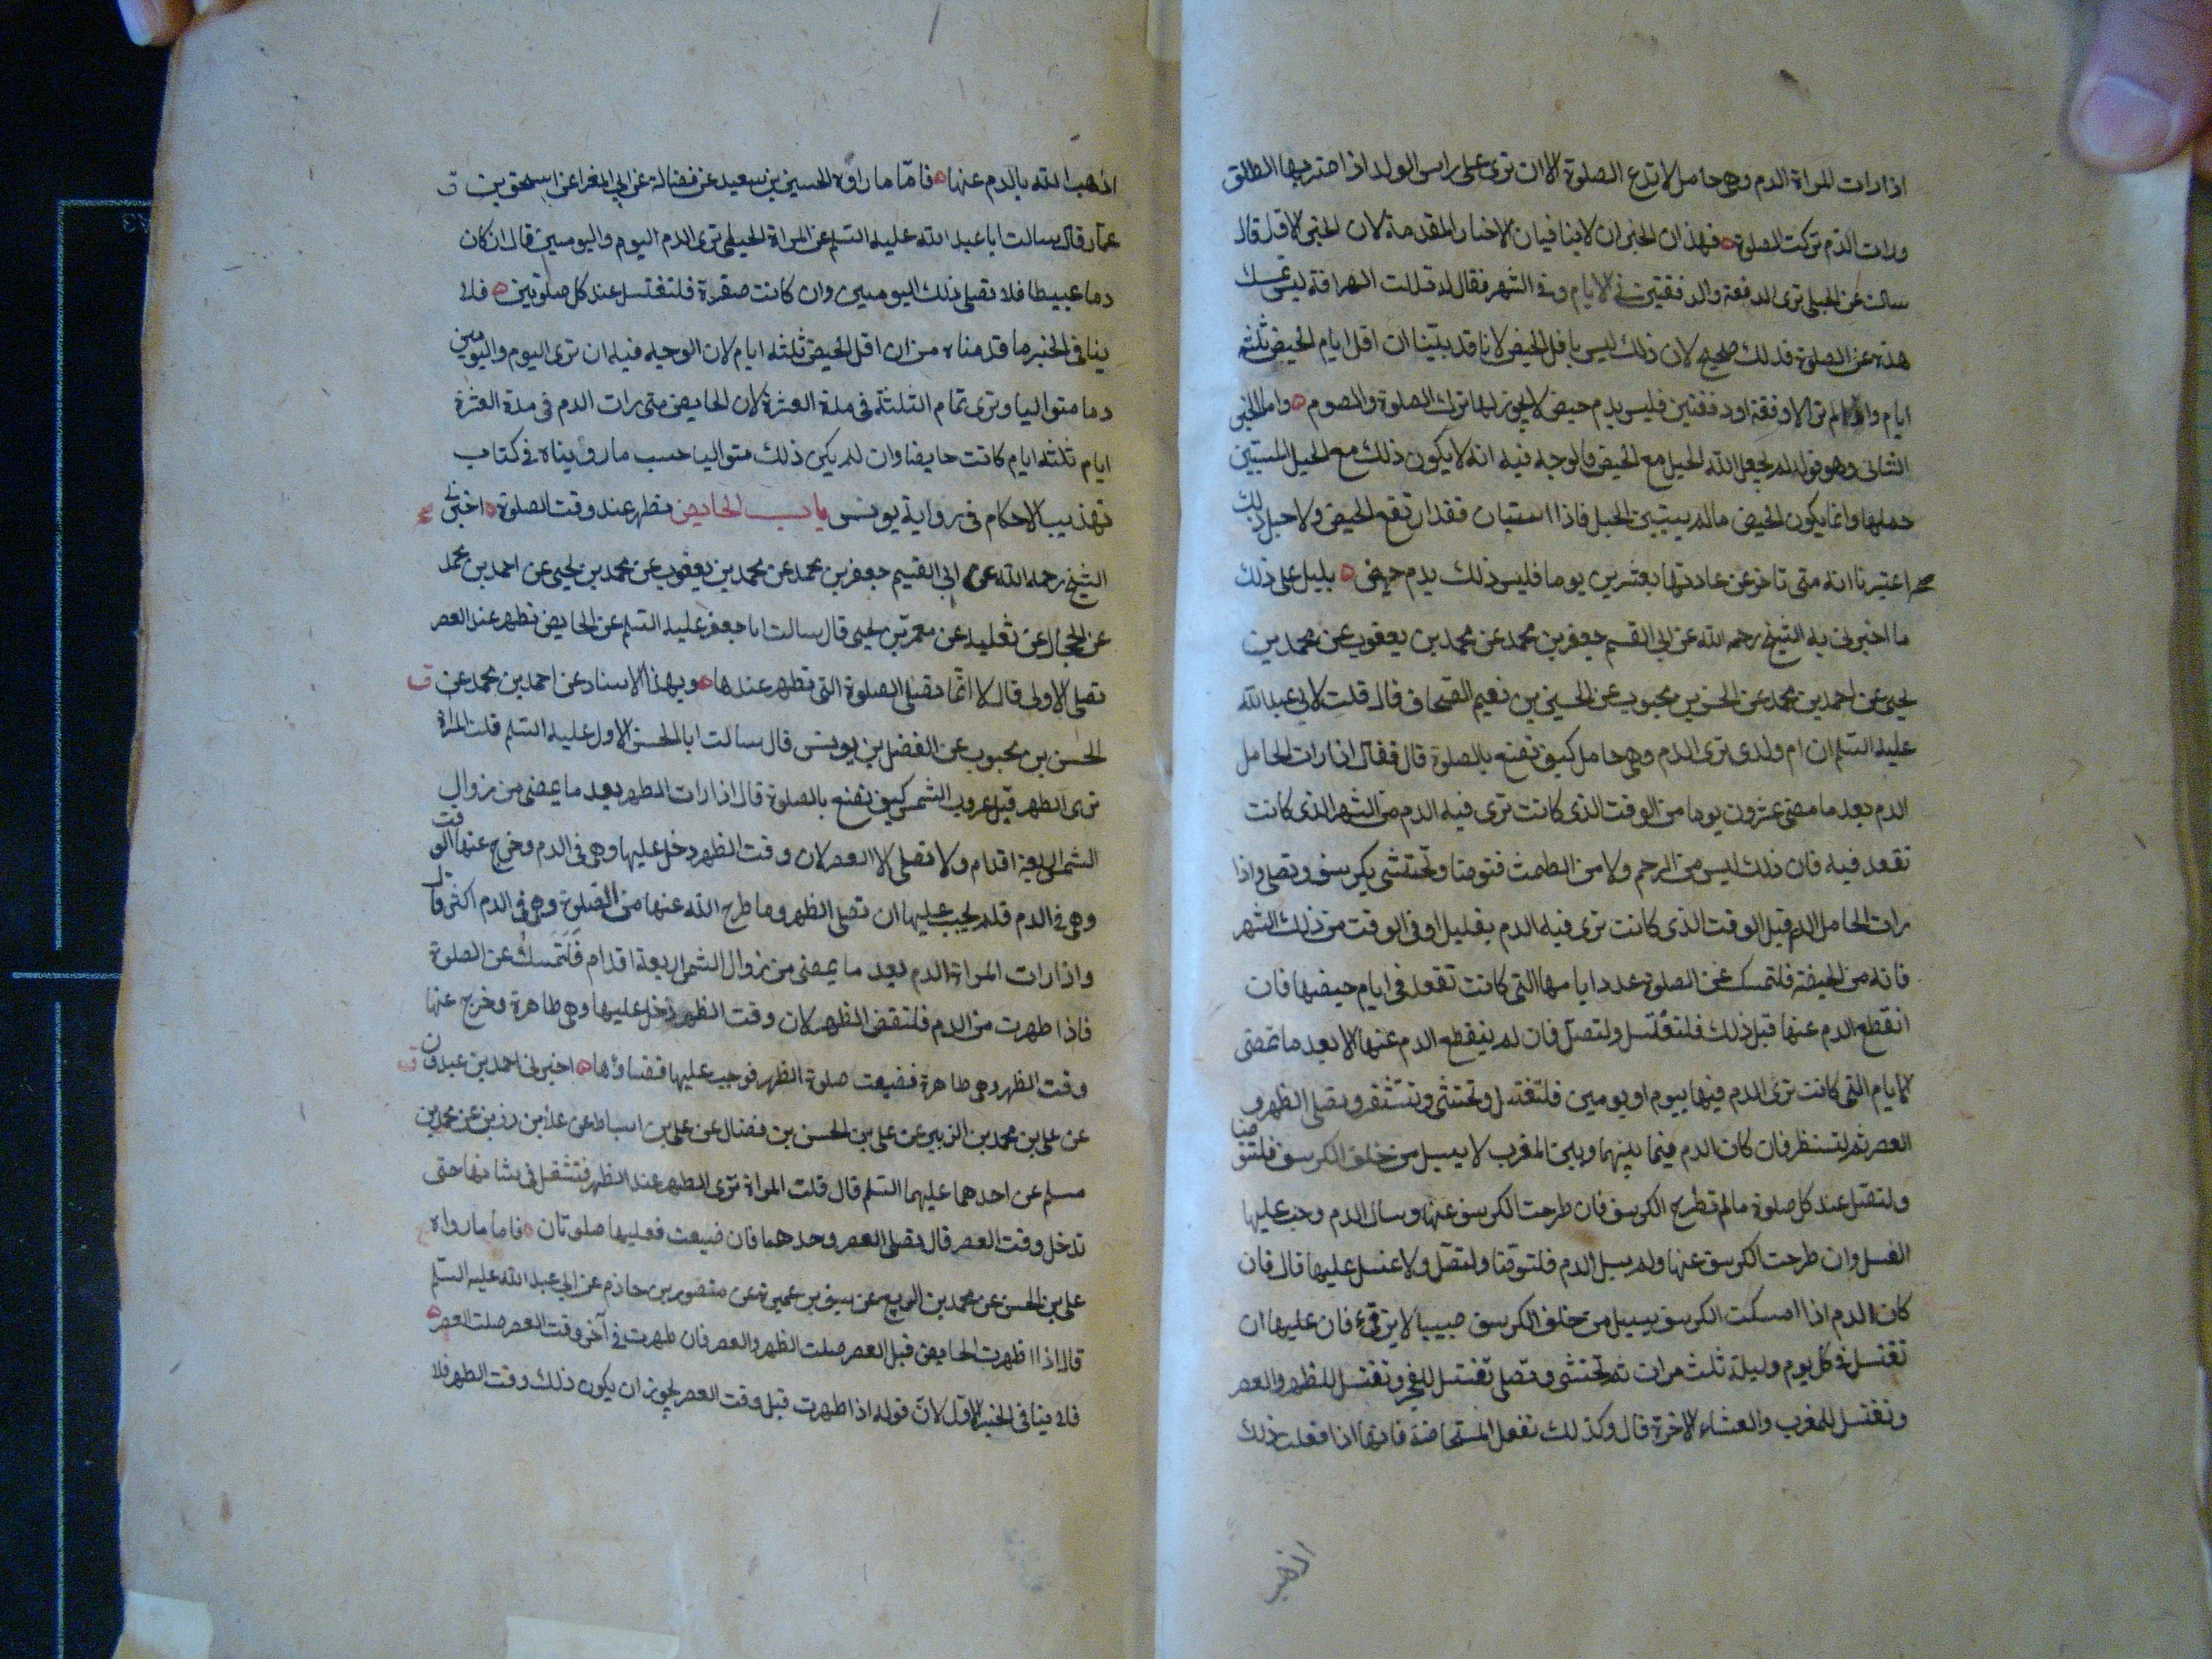 اذا رات المراة الدم وهي حامل لا تدع الصلوة الا ان ترى على راس الولد اذا ضربها الطلق
ورات الدم تركت الصلوة فهذان الخبران لا ينافيان الاخبار المقدمة لان الخبر الاول قال
سالت عن الحبلى ترى الدفقة والدفقتين في الايام وفي الشهر فقال له تلك الهراقة ليس تمسك
هذه عن الصلوة فذلك صحيح لان ذلك ليس باقل الحيض لانا قد بينا ان اقل ايام الحيض ثلثة
ايام واذا لم تر الا دفقة او دفقتين فليس بدم حيض لا يجوز لها ترك الصلوة والصوم واما الخبر
الثاني وهو قوله لم يجعل الله الحبل مع الحيض فالوجه فيه انه لا يكون ذلك مع الحبل المستبين
حملها وانما يكون الحيض ما لم يستبين الحبل فاذا استبان فقد ارتفع الحيض ولاجل ذلك
اعتبرنا انه متى تاخر عن عادتها بعشرين يوما فليس ذلك بدم حيض يدل على ذلك
ما اخبرني به الشيخ رحمه الله عن ابي القسم جعفر بن محمد عن محمد بن يعقوب عن محمد بن
يحيى عن احمد بن محمد عن الحسن بن محبوب عن الحسين بن نعيم الصحاف قال قلت لابي عبد الله
عليه السلم ان ام ولدى ترى الدم وهي حامل كيف تصنع بالصلوة قال فقال اذا رات الحامل
الدم بعد ما مضى عشرون يوما من الوقت الذي كانت ترى فيه الدم من الشهر الذي كانت
تقعد فيه فان ذلك ليس من الرحم ولا من الطمث فتوضا وتحتشي بكرسف وتصلي واذا
رات الحامل الدم قبل الوقت الذي كانت ترى فيه الدم بقليل او في الوقت من ذلك الشهر
فانه من الحيضة فلتمسك عن الصلوة عدد ايامها التي كانت تقعد في ايام حيضها فان
انقطع الدم عنها قبل ذلك فلتغتسل ولتصل فان لم ينقطع الدم عنها الا بعد ما تمضى
الايام التي كانت ترى الدم فيها بيوم او يومين فلتغتسل وتحتشي وتستثفر وتصلي الظهر و
العصر ثم لتنظر فان كان الدم فيما بينهما وبين المغرب لا يسيل من خلف الكرسف فلتتوضا
ولتصل عند كل صلوة ما لم تطرح الكرسف فان طرحت الكرسف عنها وسال الدم وجب عليها
الغسل وان طرحت الكرسف عنها ولم يسل الدم فلتتوضا ولتصل ولا غسل عليها قال فان
كان الدم اذا امسكت الكرسف يسيل من خلف الكرسف صبيبا لا يرقىء فان عليها ان
تغتسل في كل يوم وليلة ثلث مرات ثم تحتشي وتصلي تغتسل للفجر وتغتسل للظهر والعصر
وتغتسل للمغرب والعشاء الاخرة قال وكذلك تفعل المستحاضة فانها اذا فعلت ذلك
اذهب الله بالدم عنها فاما ما رواه الحسين بن سعيد عن فضالة عن ابي المغرا عن اسحق بن
عمار قال سالت ابا عبد الله عليه السلم عن المراة الحبلى ترى الدم اليوم واليومين قال ان كان
دما عبيطا فلا تصلي ذلك اليومين وان كانت صفرة فلتغتسل عند كل صلوتين فلا
ينافي الخبر ما قدمناه من ان اقل الحيض ثلثة ايام لان الوجه فيه ان ترى اليوم واليومين
دما متواليا وترى تمام الثلثة في مدة العشرة لان الحايض متى رات الدم في مدة العشرة
ايام ثلثة ايام كانت حايضا وان لم يكن ذلك متواليا حسب ما رويناه في كتاب
تهذيب الاحكام في رواية يونس باب الحايض تطهر عند وقت الصلوة اخبرني
الشيخ رحمه الله عن ابي القسم جعفر بن محمد عن محمد بن يعقوب عن محمد بن يحيى عن احمد بن محمد
عن الحجال عن ثعلبة عن معمر بن يحيى قال سالت ابا جعفر عليه السلم عن الحايض تطهر عند العصر
تصلي الاولى قال لا انما تصلي الصلوة التي تطهر عندها وبهذا الاسناد عن احمد بن محمد عن
الحسن بن محبوب عن الفضل بن يونس قال سالت ابا الحسن الاول عليه السلم قلت المراة
ترى الطهر قبل غروب الشمس كيف تصنع بالصلوة قال اذا رات الطهر بعد ما يمضى من زوال
الشمس اربعة اقدام ولا تصلي الا العصر لان وقت الظهر دخل عليها وهي في الدم وخرج عنها الوقت
وهي في الدم فلم يجب عليها ان تصلي الظهر وما طرح الله عنها من الصلوة وهي في الدم اكثر قال
واذا رات المراة الدم بعد ما يمضى من زوال الشمس اربعة اقدام فلتمسك عن الصلوة
فاذا طهرت من الدم فلتقض الظهر لان وقت الظهر دخل عليها وهي طاهرة وخرج عنها
وقت الظهر وهي طاهرة فضيعت صلوة الظهر فوجب عليها قضاؤها اخبرني احمد بن عبدون
عن علي بن محمد بن الزبير عن علي بن الحسن بن فضال عن علي بن اسباط عن علا بن رزين عن محمد بن
مسلم عن احدهما عليهما السلم قال قلت المراة ترى الطهر عند الظهر فتشتغل في شانها حتى
تدخل وقت العصر قال تصلي العصر وحدها فان ضيعت فعليها صلوتان فاما ما رواه
علي بن الحسن عن محمد بن الربيع عن سيف بن عميرة عن منصور بن حازم عن ابي عبد الله عليه السلم
قال اذا طهرت الحايض قبل العصر صلت الظهر والعصر فان طهرت في آخر وقت العصر صلت العصر
فلا ينافي الخبر الاول لان قوله اذا طهرت قبل وقت العصر يجوز ان يكون ذلك وقت الظهر فلا